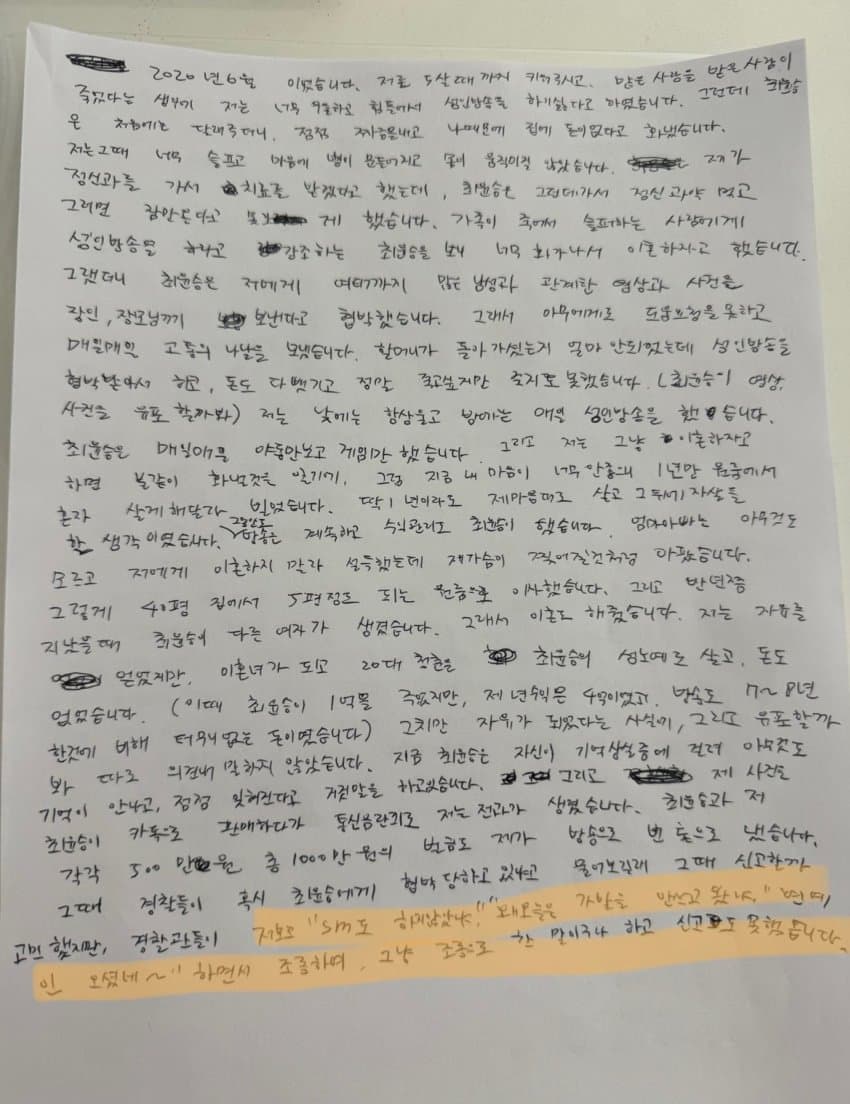 2020년 6월 이었습니다. 저를 5살때까지 키워주시고, 많은 사랑을 받은 사람이
죽었다는 생각에 저는 너무 우울하고 힘들어서 성인방송을 하기싫다고 하였습니다. 그런데 최윤승
은 처음에는 달래주더니, 점점 짜증을내고 나때문에 집에 돈이없다고 화냈습니다.
저는그때 너무 슬프고 마음에 병이 몸이 움직이질 않았습니다. 제가
정신과를 가서 치료를 받겠다고 했는데, 최윤승은 그런데가서 정신과약 먹고
그러면 잠만온다고 못 게 했습니다. 가족이 죽어서 슬퍼하는 사람에게
성인방송을 하라고 강조하는 최윤승을 보니 너무 화가나서 이혼하자고 했습니다.
그랬더니 최윤승은 저에게 여태까지 많은 남성과 관계한 영상과 사진을
장인, 장모님께 보낸다고 협박했습니다. 그래서 아무에게도 도움요청을 못하고
매일매일 고통의 나날을 보냈습니다. 할머니가 돌아가신는지 얼마 안되었는데 성인방송을
협박받아서 하고, 돈도 다 뺏기고 정말 죽고싶지만 죽지도 못했습니다. (최윤승이 영상,
사진을 유포할까봐) 저는 낮에는 항상울고 밤에는 매일 성인방송을 했습니다.
최윤승은 매일매일 야동만보고 게임만 했습니다. 그리고 저는 그냥 이혼하자고
하면 불같이 화낼것을 알기에, 그럼 지금 내 마음이 너무 안좋으니 1년만 원룸에서
혼자 살게해달라 빌었습니다. 딱 1년이라도 제마음대로 살고 그뒤에 자살을
할 생각이였습니다. 방송은 계속하고 수익관리도 최윤승이 했습니다. 엄마아빠는 아무것도
모르고 저에게 이혼하지 말라 설득했는데 제가슴이 찢어질것처럼 아팠습니다.
그렇게 40평 집에서 5평정도 되는 원룸으로 이사했습니다. 그리고 반년쯤
지났을때 최윤승이 다른 여자가 생겼습니다. 그래서 이혼도 해줬습니다. 저는 자유를
얻었지만, 이혼녀가 되고 20대 청춘을 최윤승의 성노예로 살고, 돈도
없었습니다. (이때 최윤승이 1억을 주었지만, 제 년수익은 4억이었고, 방송도 7~8년
한것에 비해 터무니없는 돈이였습니다) 그치만 자유가 되었다는 사실에, 그리고 유포할까
봐 따로 의견내 말하지 않았습니다. 지금 최윤승은 자신이 기억상실증에 걸려 아무것도
기억이 안나고, 점점 잊혀진다고 거짓말을 하고있습니다. 그리고 제 사진을
최윤승이 카톡으로 판매하다가 통신음란죄로 저는 전과가 생겼습니다. 최윤승과 저
각각 500만원 총 1000만원의 벌금도 제가 방송으로 번 돈으로 냈습니다.
그때 경찰들이 혹시 최윤승에게 협박당하고 있냐고 물어보길래 그때 신고할까
고민했지만, 경찰관들이 저보고 "sm도 하지않았냐," "왜오늘은 가발을 안쓰고 왔냐," "연예
인 오셨네~" 하면서 조롱하며, 그냥 조롱으로 한 말이구나 하고 신고도 못했습니다.